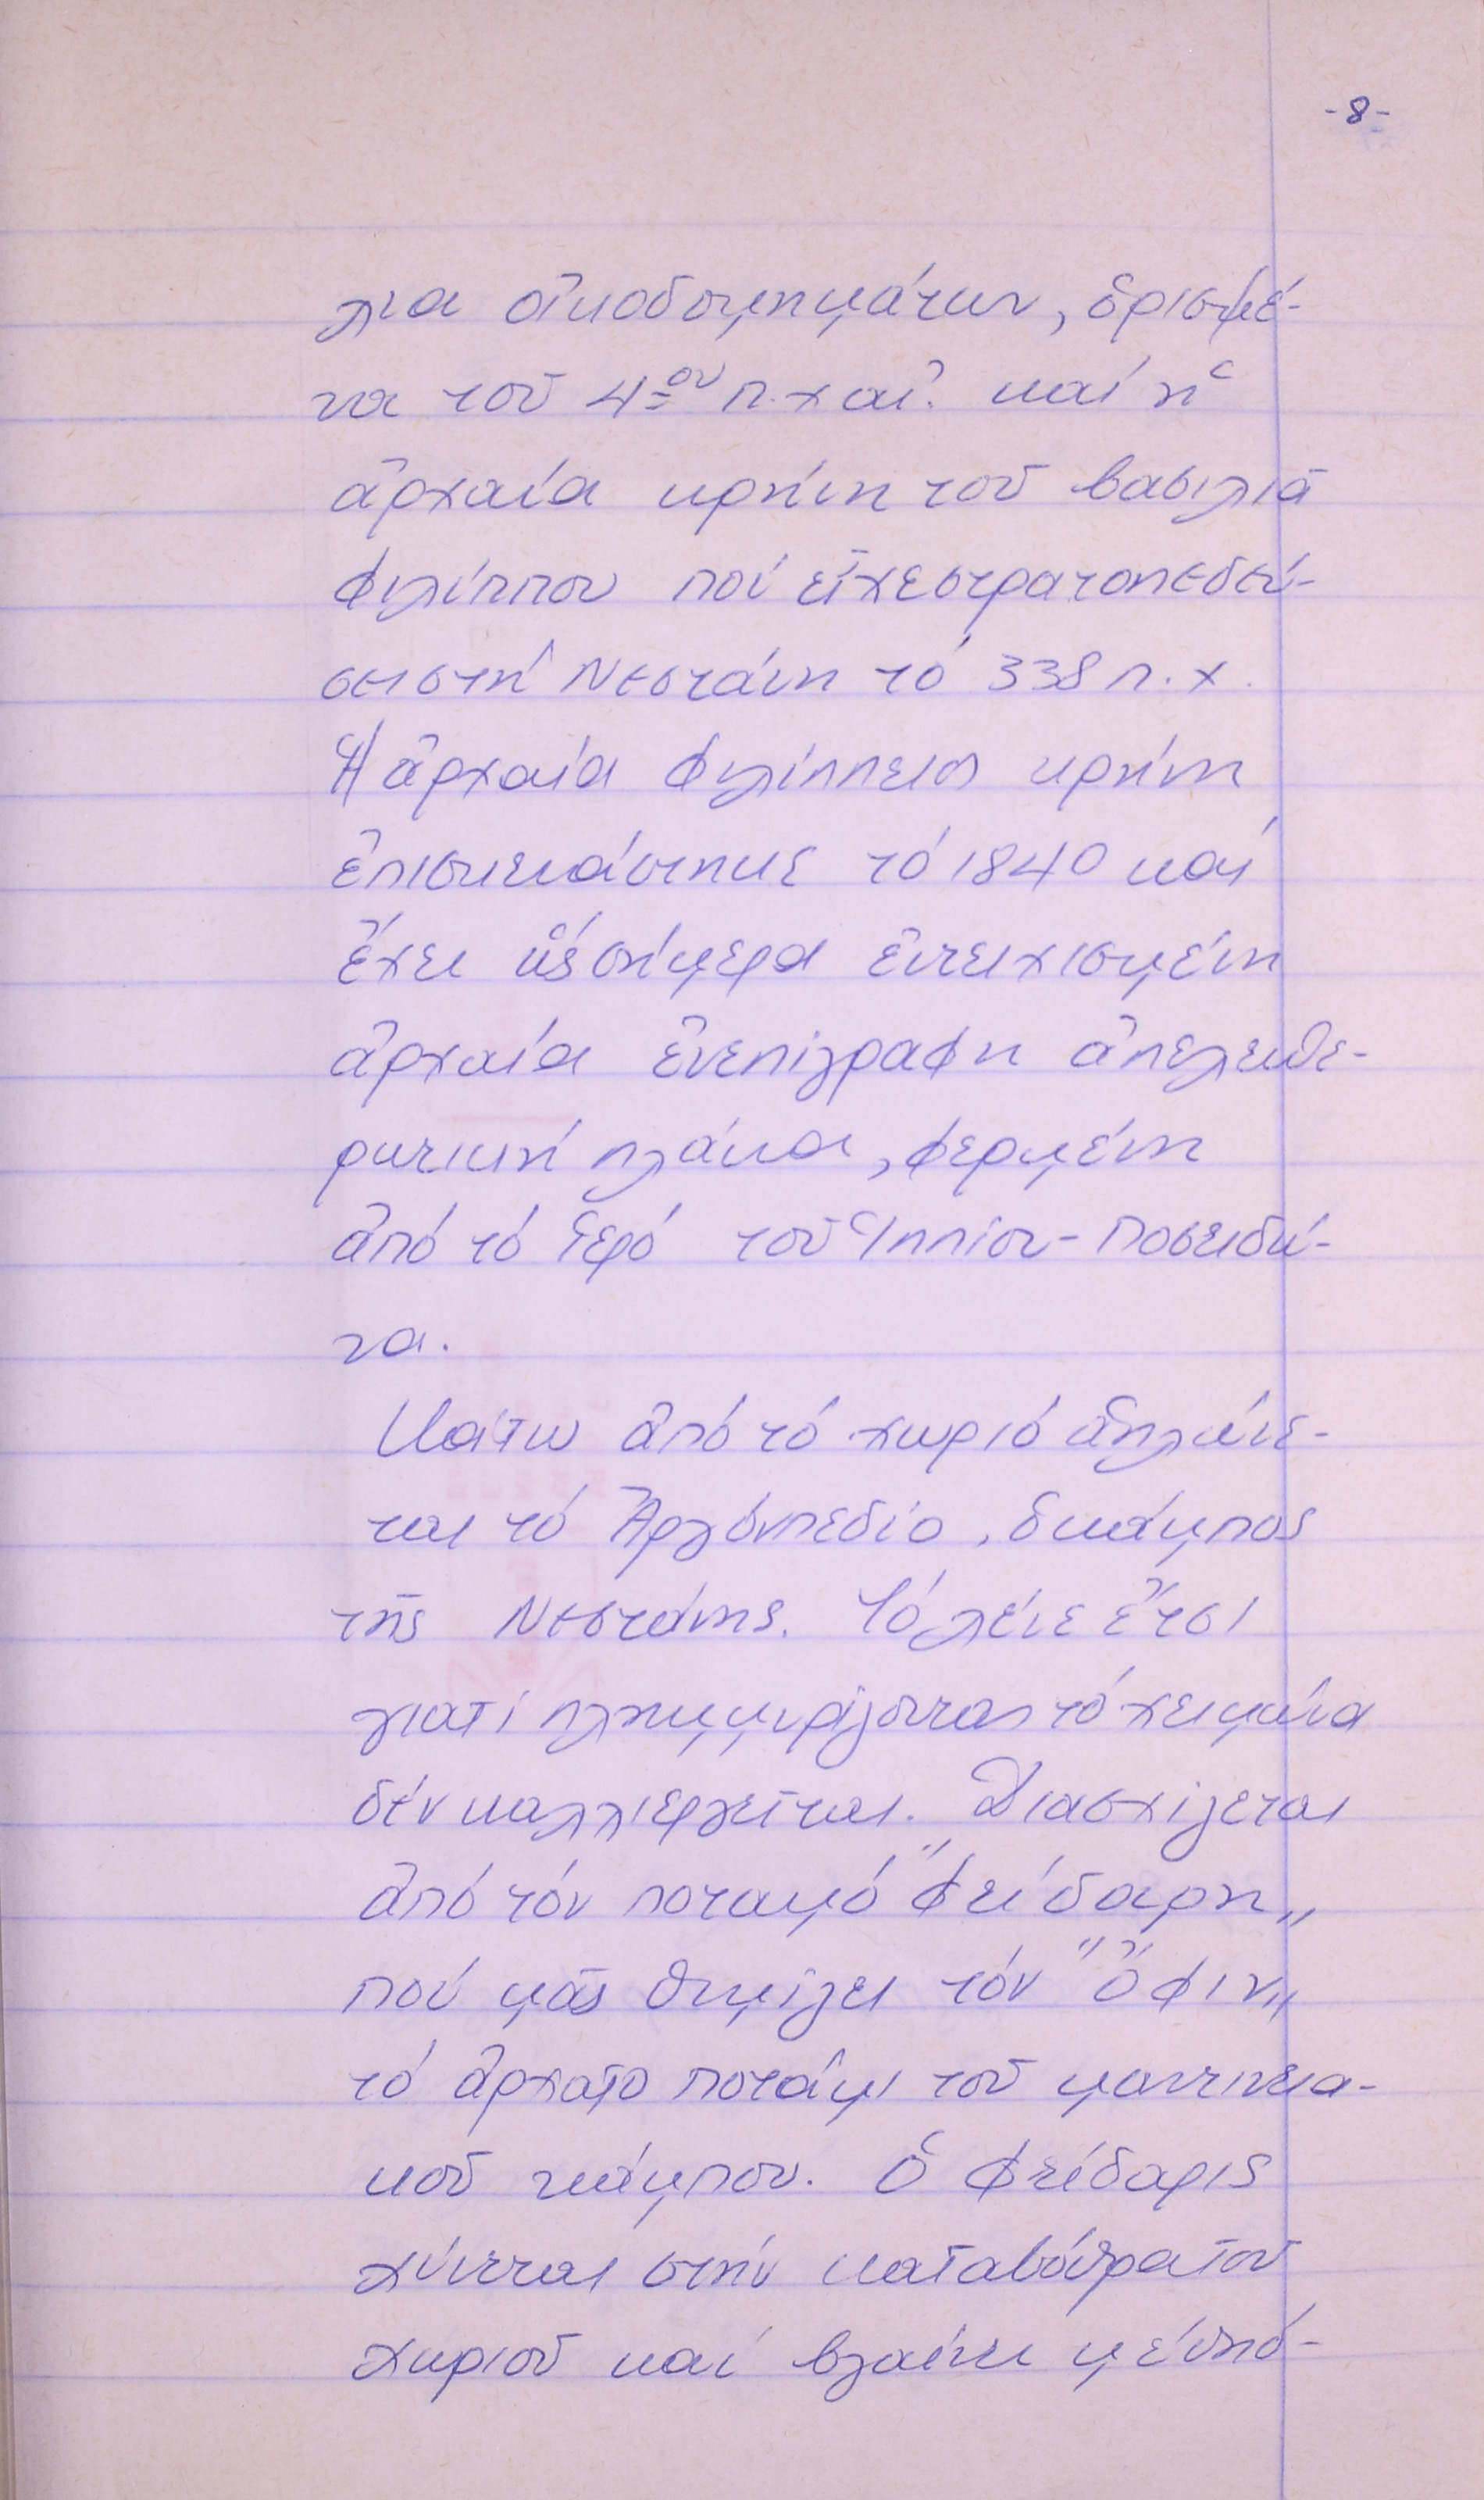 -8-
λια οἰκοδομημάτων, ὁρισμέ-
να τοῦ 4ου π.χ αἰ. καί ἡ
ἀρχαία κρήνη τοῦ βασιλιᾶ
Φιλίππου πού εἶχε στρατοπεδεύ-
σει στή Νεστάνη τό 338 π.χ.
Ἡ ἀρχαία Φιλίππειος κρήνη
ἐπισκευάστηκε τό 1840 καί
ἔχει ὥς σήμερα ἐντειχισμένη
ἀρχαία ἐνεπίγραφη ἀπελευθε-
ρωτική πλάκα, φερμένη
ἀπό τό ἱερό τοῦ Ἱππίου-Ποσειδώ-
να.
Κάτω ἀπό τό χωριό ἁπλώνε-
ται τό Ἀργόν πεδίο, ὁ κάμπος
τῆς Νεστάνης. Τό λένε ἔτσι
γιατί πλημμυρίζοντας τό χειμώνα
δέν καλλιεργεῖται. Διασχίζεται
ἀπό τόν ποταμό "Φείδαρη"
πού μᾶς θυμίζει τόν "Ὄφιν"
τό ἀρχαῖο ποτάμι τοῦ μαντινεια-
κοῦ κάμπου. Ὁ Φείδαρις
χύνεται στήν καταβόθρα τοῦ
χωριοῦ καί βγαίνει μέ ὑπό-